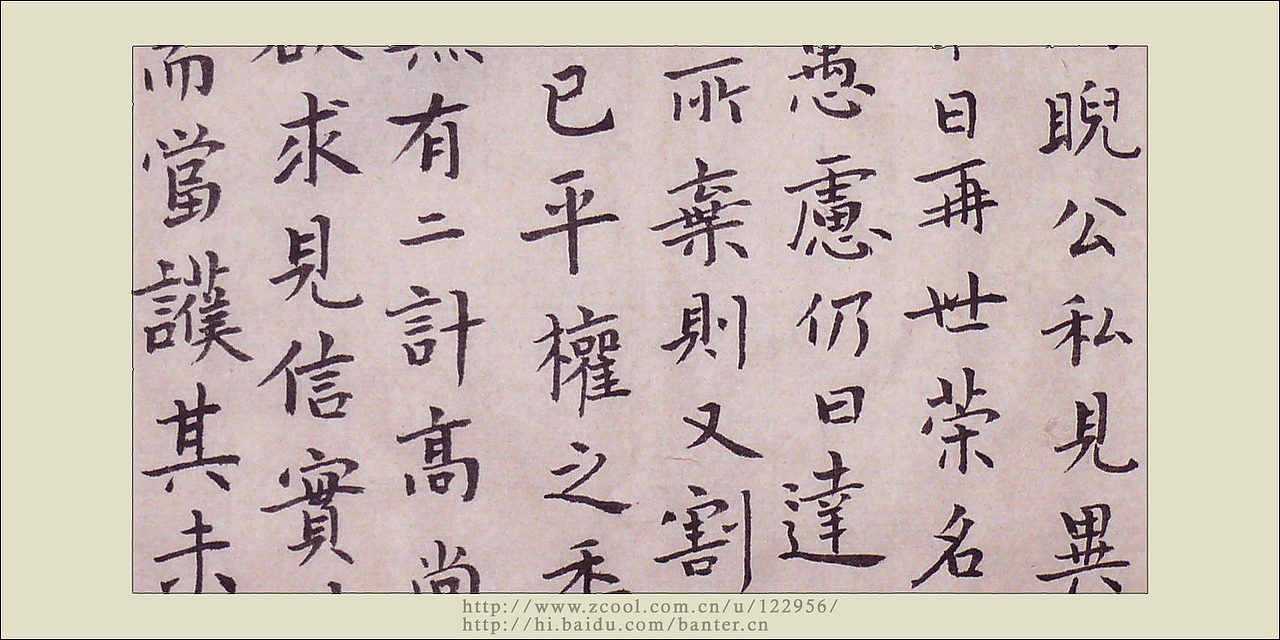 睨公私見異
日再世榮名
愚慮仍日達
所棄則又割
已平權之
無有二計高尚
欲求見信實
而當護其未
http://www.zcool.com.cn/u/122956/
http://hi.baidu.com/banter.cn